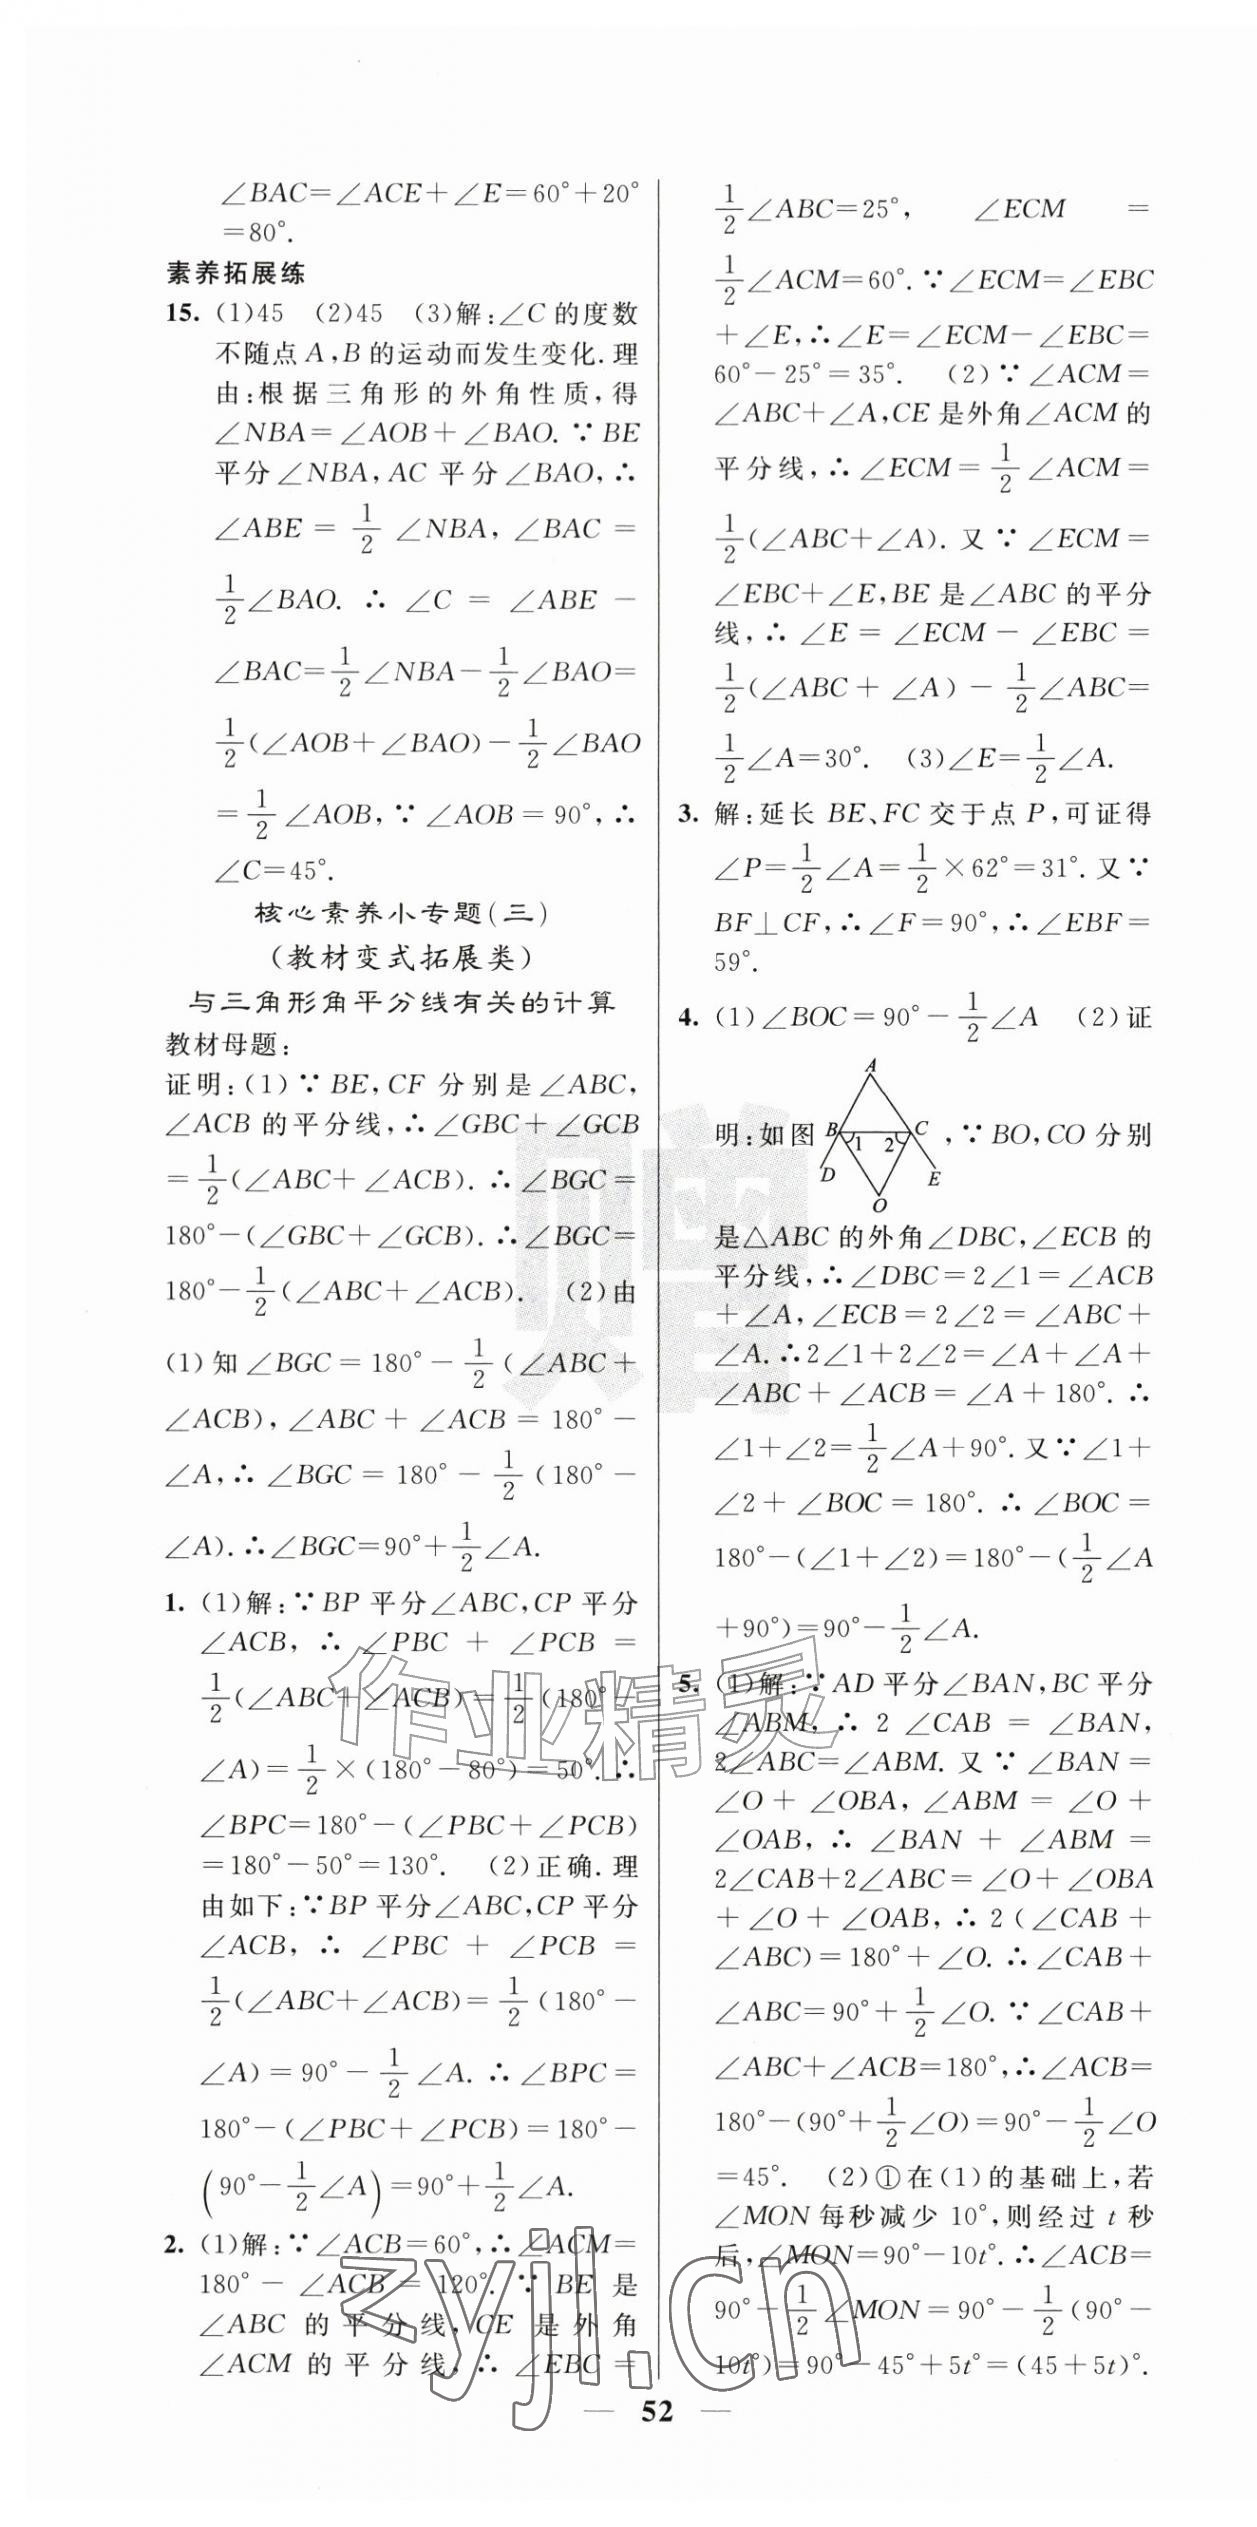 ∠BAC=∠ACE+∠E=60°+20°
=80°.
素养拓展练
15. (1)45 (2)45 (3)解:∠C的度数
不随点A,B的运动而发生变化.理
由:根据三角形的外角性质,得
∠NBA=∠AOB+∠BAO.∵BE
平分∠NBA,AC平分∠BAO,∴
∠ABE=1/2∠NBA,∠BAC=
1/2∠BAO.∴∠C=∠ABE-
∠BAC=1/2∠NBA-1/2∠BAO=
1/2(∠AOB+∠BAO)-1/2∠BAO
=1/2∠AOB,∵∠AOB=90°,∴
∠C=45°.
核心素养小专题(三)
(教材变式拓展类)
与三角形角平分线有关的计算
教材母题:
证明:(1)∵BE,CF分别是∠ABC,
∠ACB的平分线,∴∠GBC+∠GCB
=1/2(∠ABC+∠ACB).∴∠BGC=
180°-(∠GBC+∠GCB).∴∠BGC=
180°-1/2(∠ABC+∠ACB). (2)由
(1)知∠BGC=180°-1/2(∠ABC+
∠ACB),∠ABC+∠ACB=180°-
∠A,∴∠BGC=180°-1/2(180°-
∠A).∴∠BGC=90°+1/2∠A.
1. (1)解:∵BP平分∠ABC,CP平分
∠ACB,∴∠PBC+∠PCB=
1/2(∠ABC+∠ACB)=1/2(180°-
∠A)=1/2×(180°-80°)=50°.∴
∠BPC=180°-(∠PBC+∠PCB)
=180°-50°=130°. (2)正确.理
由如下:∵BP平分∠ABC,CP平分
∠ACB,∴∠PBC+∠PCB=
1/2(∠ABC+∠ACB)=1/2(180°-
∠A)=90°-1/2∠A.∴∠BPC=
180°-(∠PBC+∠PCB)=180°-
(90°-1/2∠A)=90°+1/2∠A.
2. (1)解:∵∠ACB=60°,∴∠ACM=
180°-∠ACB=120°.∵BE是
∠ABC的平分线,CE是外角
∠ACM的平分线,∴∠EBC=
1/2∠ABC=25°,∠ECM=
1/2∠ACM=60°.∵∠ECM=∠EBC
+∠E,∴∠E=∠ECM-∠EBC=
60°-25°=35°. (2)∵∠ACM=
∠ABC+∠A,CE是外角∠ACM的
平分线,∴∠ECM=1/2∠ACM=
1/2(∠ABC+∠A).又∵∠ECM=
∠EBC+∠E,BE是∠ABC的平分
线,∴∠E=∠ECM-∠EBC=
1/2(∠ABC+∠A)-1/2∠ABC=
1/2∠A=30°. (3)∠E=1/2∠A.
3. 解:延长BE、FC交于点P,可证得
∠P=1/2∠A=1/2×62°=31°.又∵
BF⊥CF,∴∠F=90°,∴∠EBF=
59°.
4. (1)∠BOC=90°-1/2∠A (2)证
A
明:如图 B 1 2 C ,∵BO,CO分别
D E
O
是△ABC的外角∠DBC,∠ECB的
平分线,∴∠DBC=2∠1=∠ACB
+∠A,∠ECB=2∠2=∠ABC+
∠A.∴2∠1+2∠2=∠A+∠A+
∠ABC+∠ACB=∠A+180°.∴
∠1+∠2=1/2∠A+90°.又∵∠1+
∠2+∠BOC=180°.∴∠BOC=
180°-(∠1+∠2)=180°-(1/2∠A
+90°)=90°-1/2∠A.
5. (1)解:∵AD平分∠BAN,BC平分
∠ABM,∴2∠CAB=∠BAN,
2∠ABC=∠ABM.又∵∠BAN=
∠O+∠OBA,∠ABM=∠O+
∠OAB,∴∠BAN+∠ABM=
2∠CAB+2∠ABC=∠O+∠OBA
+∠O+∠OAB,∴2(∠CAB+
∠ABC)=180°+∠O.∴∠CAB+
∠ABC=90°+1/2∠O.∵∠CAB+
∠ABC+∠ACB=180°,∴∠ACB=
180°-(90°+1/2∠O)=90°-1/2∠O
=45°. (2)①在(1)的基础上,若
∠MON每秒减少10°,则经过t秒
后,∠MON=90°-10t°.∴∠ACB=
90°-1/2∠MON=90°-1/2(90°-
10t°)=90°-45°+5t°=(45+5t)°.
52
赠
作业精灵
zyjl.cn